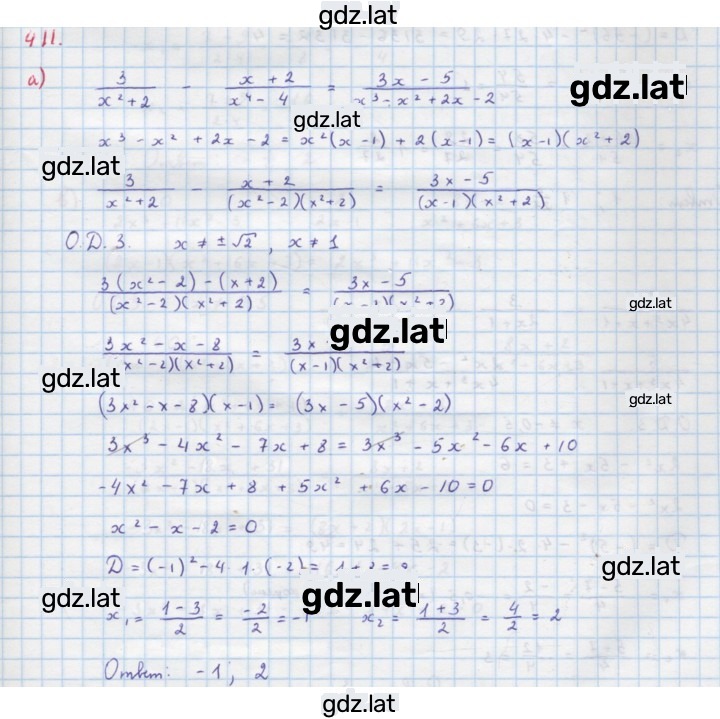 gdz.lat
411.
а) 3/(x²+2) - (x+2)/(x⁴-4) = (3x-5)/(x³-x²+2x-2)
gdz.lat
gdz.lat
x³ - x² + 2x - 2 = x²(x-1) + 2(x-1) = (x-1)(x²+2)
gdz.lat
3/(x²+2) - (x+2)/((x²-2)(x²+2)) = (3x-5)/((x-1)(x²+2))
О.Д.З. x ≠ ±√2, x ≠ 1
(3(x²-2)-(x+2))/((x²-2)(x²+2)) = (3x-5)/((x-1)(x²+2))
gdz.lat
gdz.lat
(3x²-x-8)/((x²-2)(x²+2)) = 3x/((x-1)(x²+2))
gdz.lat
gdz.lat
(3x²-x-8)(x-1) = (3x-5)(x²-2)
3x³ - 4x² - 7x + 8 = 3x³ - 5x² - 6x + 10
-4x² - 7x + 8 + 5x² + 6x - 10 = 0
x² - x - 2 = 0
D = (-1)² - 4·1·(-2) = 1+8=9
gdz.lat
gdz.lat
gdz.lat
x₁ = (1-3)/2 = -2/2 = -1 x₂ = (1+3)/2 = 4/2 = 2
Ответ: -1; 2
gdz.lat